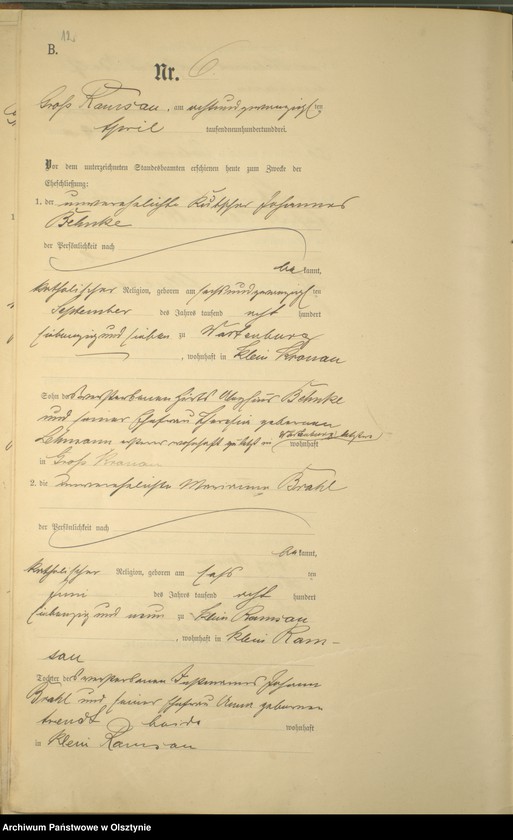 B.
12.
Nr. 6
Groß Ramsau, am achtundzwanzigsten
April tausendneunhundertunddrei.
Vor dem unterzeichneten Standesbeamten erschienen heute zum Zwecke der
Eheschließung:
1. der unverehelichte Kutscher Johannes
Behnke
der Persönlichkeit nach
be kannt,
katholischer Religion, geboren am sechsundzwanzigsten
September des Jahres tausend acht hundert
siebenzig und sieben zu Wartenburg
, wohnhaft in Klein Kronau
Sohn des verstorbenen Hirts Behnke
und seiner Ehefrau Theresia geborenen
Lehmann wohnhaft zuletzt in Wartenburg, letztere wohnhaft
in Groß Kronau
2. die unverehelichte Marianna Brahl
der Persönlichkeit nach
be kannt,
katholischer Religion, geboren am sechs ten
Juni des Jahres tausend acht hundert
siebenzig und neun zu Klein Ramsau
, wohnhaft in Klein Ram-
sau
Tochter des verstorbenen Instmannes Johann
Brahl und seiner Ehefrau Anna geborenen
beide wohnhaft
in Klein Ramsau
Archiwum Państwowe w Olsztynie